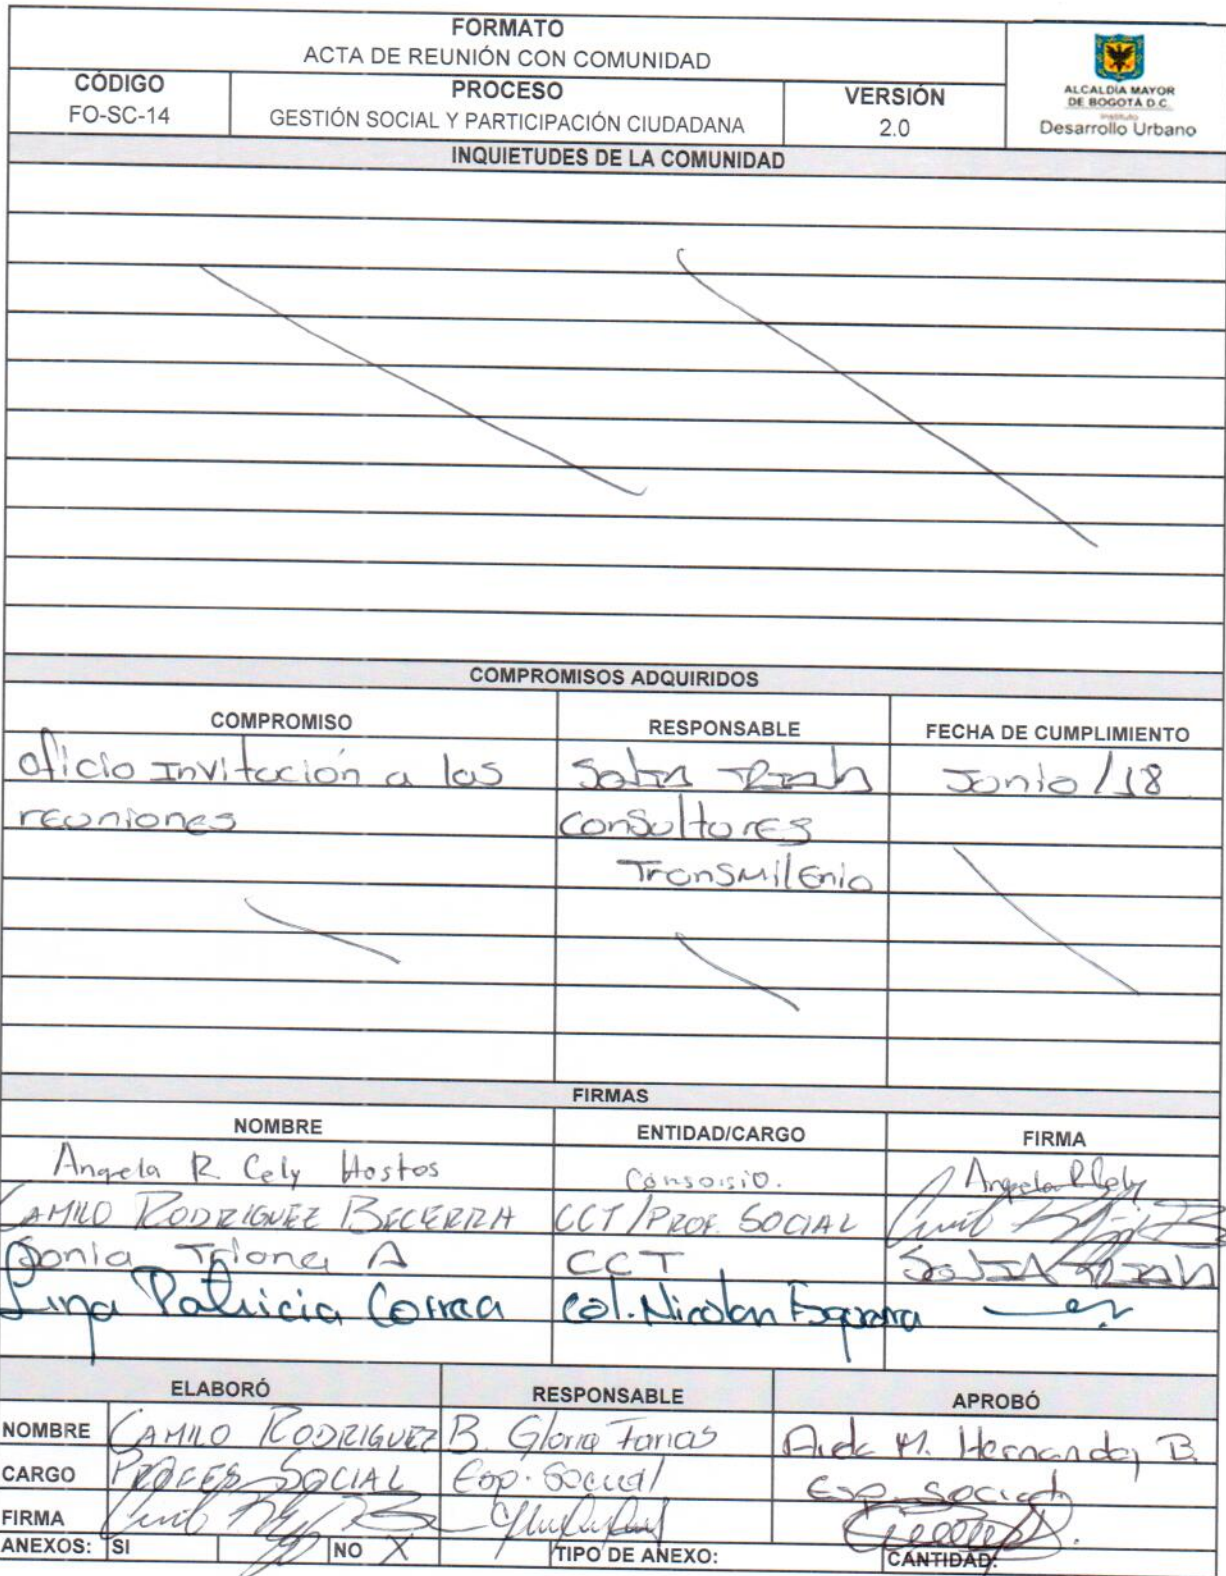 FORMATO
ACTA DE REUNIÓN CON COMUNIDAD
CÓDIGO PROCESO VERSIÓN
FO-SC-14 GESTIÓN SOCIAL Y PARTICIPACIÓN CIUDADANA 2.0
ALCALDÍA MAYOR
DE BOGOTÁ D.C.
Instituto
Desarrollo Urbano
INQUIETUDES DE LA COMUNIDAD
COMPROMISOS ADQUIRIDOS
COMPROMISO RESPONSABLE FECHA DE CUMPLIMIENTO
oficio Invitación a las Junio /18
reuniones consultores
Transmilenio
FIRMAS
NOMBRE ENTIDAD/CARGO FIRMA
Angela R Cely Hostos Consorsio. Angela R Cely
CAMILO RODRIGUEZ BECERRA CCT/PROF. SOCIAL
Sonia Triana A CCT
Lina Patricia Correa Col. Nicolas Esguerra
ELABORÓ RESPONSABLE APROBÓ
NOMBRE CAMILO RODRIGUEZ B. Gloria Farias M. Hernandez B.
CARGO SOCIAL Esp. Social Esp. Social
FIRMA
ANEXOS: SI NO X TIPO DE ANEXO: CANTIDAD: